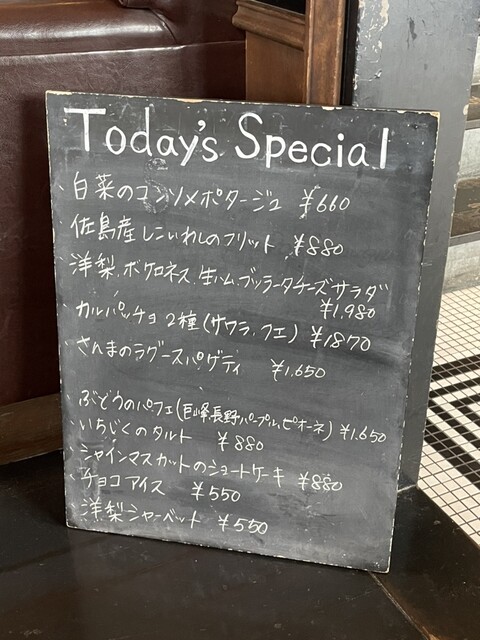 Today's Special
白菜のコンソメポタージュ ¥660
佐島産しこいわしのフリット ¥880
洋梨、ボケロネス、生ハム、ブッラータチーズサラダ
¥1,980
カルパッチョ 2種(サワラ、クエ) ¥1870
さんまのラグースパゲティ ¥1.650
ぶどうのパフェ(巨峰、長野パープル、ピオーネ) ¥1.650
いちじくのタルト ¥880
シャインマスカットのショートケーキ ¥880
チョコアイス ¥550
洋梨シャーベット ¥550